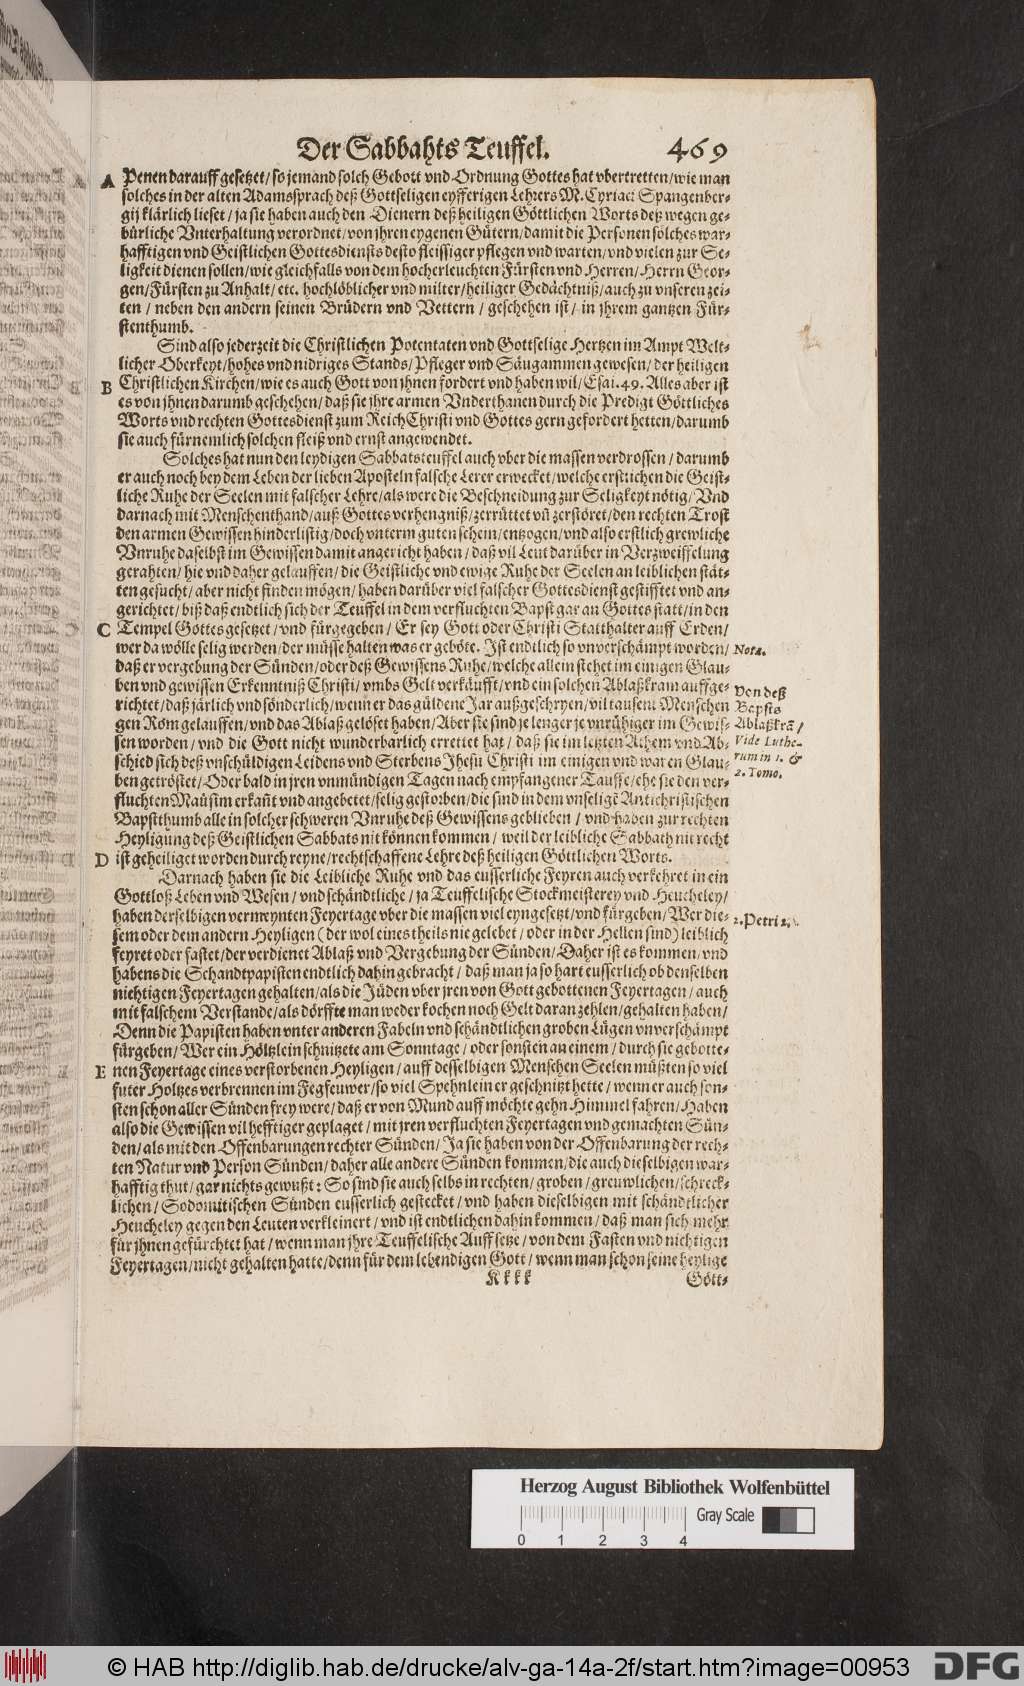 Der Sabbahts Teuffel. 469
A Penen darauff gesetzet / so jemand solch Gebott vnd Ordnung Gottes hat vbertretten / wie man
solches in der alten Adamssprach deß Gottseligen eyfferigen Lehrers M. Cyriaci Spangenber-
gij klärlich lieset / ja sie haben auch den Dienern deß heiligen Göttlichen Worts deß wegen ge-
bürliche Vnterhaltung verordnet / von jhren eygenen Gütern / damit die Personen solches war-
hafftigen vnd Geistlichen Gottesdiensts desto fleissiger pflegen vnd warten / vnd vielen zur Se-
ligkeit dienen sollen / wie gleichfalls von dem hocherleuchten Fürsten vnd Herren / Herrn Geor-
gen / Fürsten zu Anhalt / etc. hochlöblicher vnd milter / heiliger Gedächtniß / auch zu vnseren zei-
ten / neben den andern seinen Brüdern vnd Vettern / geschehen ist / in jhrem gantzen Für-
stenthumb.
Sind also jederzeit die Christlichen Potentaten vnd Gottselige Hertzen im Ampt Welt-
licher Oberkeyt / hohes vnd nidriges Stands / Pfleger vnd Säugammen gewesen / der heiligen
B Christlichen Kirchen / wie es auch Gott von jhnen fordert vnd haben wil / Esai. 49. Alles aber ist
es von jhnen darumb geschehen / daß sie jhre armen Vnderthanen durch die Predigt Göttliches
Worts vnd rechten Gottesdienst zum Reich Christi vnd Gottes gern gefordert hetten / darumb
sie auch fürnemlich solchen fleiß vnd ernst angewendet.
Solches hat nun den leydigen Sabbatsteuffel auch vber die massen verdrossen / darumb
er auch noch bey dem Leben der lieben Aposteln falsche Lerer erwecket / welche erstlichen die Geist-
liche Ruhe der Seelen mit falscher Lehre / als were die Beschneidung zur Seligkeyt nötig / Vnd
darnach mit Menschenthand / auß Gottes verhengniß / zerrüttet vñ zerstöret / den rechten Trost
den armen Gewissen hinderlistig / doch vnterm guten schein / entzogen / vnd also erstlich grewliche
Vnruhe daselbst im Gewissen damit angericht haben / daß vil Leut darüber in Verzweiffelung
gerahten / hie vnd daher gelauffen / die Geistliche vnd ewige Ruhe der Seelen an leiblichen stät-
ten gesucht / aber nicht finden mögen / haben darüber viel falscher Gottesdienst gestifftet vnd an-
gerichtet / biß daß endtlich sich der Teuffel in dem verfluchten Bapst gar an Gottes statt / in den
C Tempel Gottes gesetzet / vnd fürgegeben / Er sey Gott oder Christi Statthalter auff Erden /
wer da wölle selig werden / der müsse halten was er geböte. Ist endtlich so vnverschämpt worden / Nota.
daß er vergebung der Sünden / oder deß Gewissens Ruhe / welche allein stehet im einigen Glau-
ben vnd gewissen Erkenntniß Christi / vmbs Gelt verkäufft / vnd ein solchen Ablaßkram auffge- Von deß
richtet / daß järlich vnd sönderlich / wenn er das güldene Jar außgeschryen / vil tausent Menschen Bapsts
gen Rom gelauffen / vnd das Ablaß gelöset haben / Aber sie sind je lenger je vnrühiger im Gewis- Ablaßkrã /
sen worden / vnd die Gott nicht wunderbarlich errettet hat / daß sie im letzten Athem vnd Ab- Vide Luthe-
schied sich deß vnschüldigen Leidens vnd Sterbens Jhesu Christi im einigen vnd waren Glau- rum in 1. &
ben getröstet / Oder bald in jren vnmündigen Tagen nach empfangener Tauffe / ehe sie den ver- 2. Tomo.
fluchten Maůsim erkañt vnd angebetet / selig gestorben / die sind in dem vnseligẽ Antichristischen
Bapstthumb alle in solcher schweren Vnruhe deß Gewissens geblieben / vnd haben zur rechten
Heyligung deß Geistlichen Sabbats nit können kommen / weil der leibliche Sabbath nit recht
D ist geheiliget worden durch reyne / rechtschaffene Lehre deß heiligen Göttlichen Worts.
Darnach haben sie die Leibliche Ruhe vnd das eusserliche Feyren auch verkehret in ein
Gottloß Leben vnd Wesen / vnd schändtliche / ja Teuffelische Stockmeisterey vnd Heucheley /
haben derselbigen vermeynten Feyertage vber die massen viel eyngesetzt / vnd fürgeben / Wer die- 2. Petri 2.
sem oder dem andern Heyligen (der wol eines theils nie gelebet / oder in der Hellen sind) leiblich
feyret oder fastet / der verdienet Ablaß vnd Vergebung der Sünden / Daher ist es kommen / vnd
habens die Schandtpapisten endtlich dahin gebracht / daß man ja so hart eusserlich ob denselben
nichtigen Feyertagen gehalten / als die Jüden vber jren von Gott gebottenen Feyertagen / auch
mit falschem Verstande / als dörffte man weder kochen noch Gelt daran zehlen / gehalten haben /
Denn die Papisten haben vnter anderen Fabeln vnd schändtlichen groben Lügen vnverschämpt
fürgeben / Wer ein Höltzlein schnitzete am Sonntage / oder sonsten an einem / durch sie gebotte-
E nen Feyertage eines verstorbenen Heyligen / auff desselbigen Menschen Seelen müßten so viel
futer Holtzes verbrennen im Fegfeuwer / so viel Spehnlein er geschnitzt hette / wenn er auch son-
sten schon aller Sünden frey were / daß er von Mund auff möchte gehn Himmel fahren / Haben
also die Gewissen vil hefftiger geplaget / mit jren verfluchten Feyertagen vnd gemachten Sün-
den / als mit den Offenbarungen rechter Sünden / Ja sie haben von der Offenbarung der rech-
ten Natur vnd Person Sünden / daher alle andere Sünden kommen / die auch dieselbigen war-
hafftig thut / gar nichts gewußt: So sind sie auch selbs in rechten / groben / greuwlichen / schreck-
lichen / Sodomitischen Sünden eusserlich gestecket / vnd haben dieselbigen mit schändtlicher
Heucheley gegen den Leuten verkleinert / vnd ist endtlichen dahin kommen / daß man sich mehr
für jhnen gefürchtet hat / wenn man jhre Teuffelische Auffsetze / von dem Fasten vnd nichtigen
Feyertagen / nicht gehalten hatte / denn für dem lebendigen Gott / wenn man schon seine heylige
Kkkk Gött-
Herzog August Bibliothek Wolfenbüttel
Gray Scale
0 1 2 3 4
© HAB http://diglib.hab.de/drucke/alv-ga-14a-2f/start.htm?image=00953 DFG